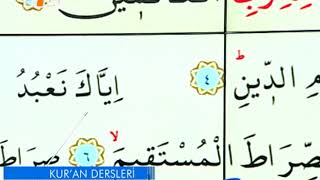 الْعَالَمِينَ
مِ الدِّينِ ٤ اِيَّاكَ نَعْبُدُ
صِّرَاطَ الْمُسْتَقِيمَ ٦ صِرَاطَ
KUR'AN DERSLERİ